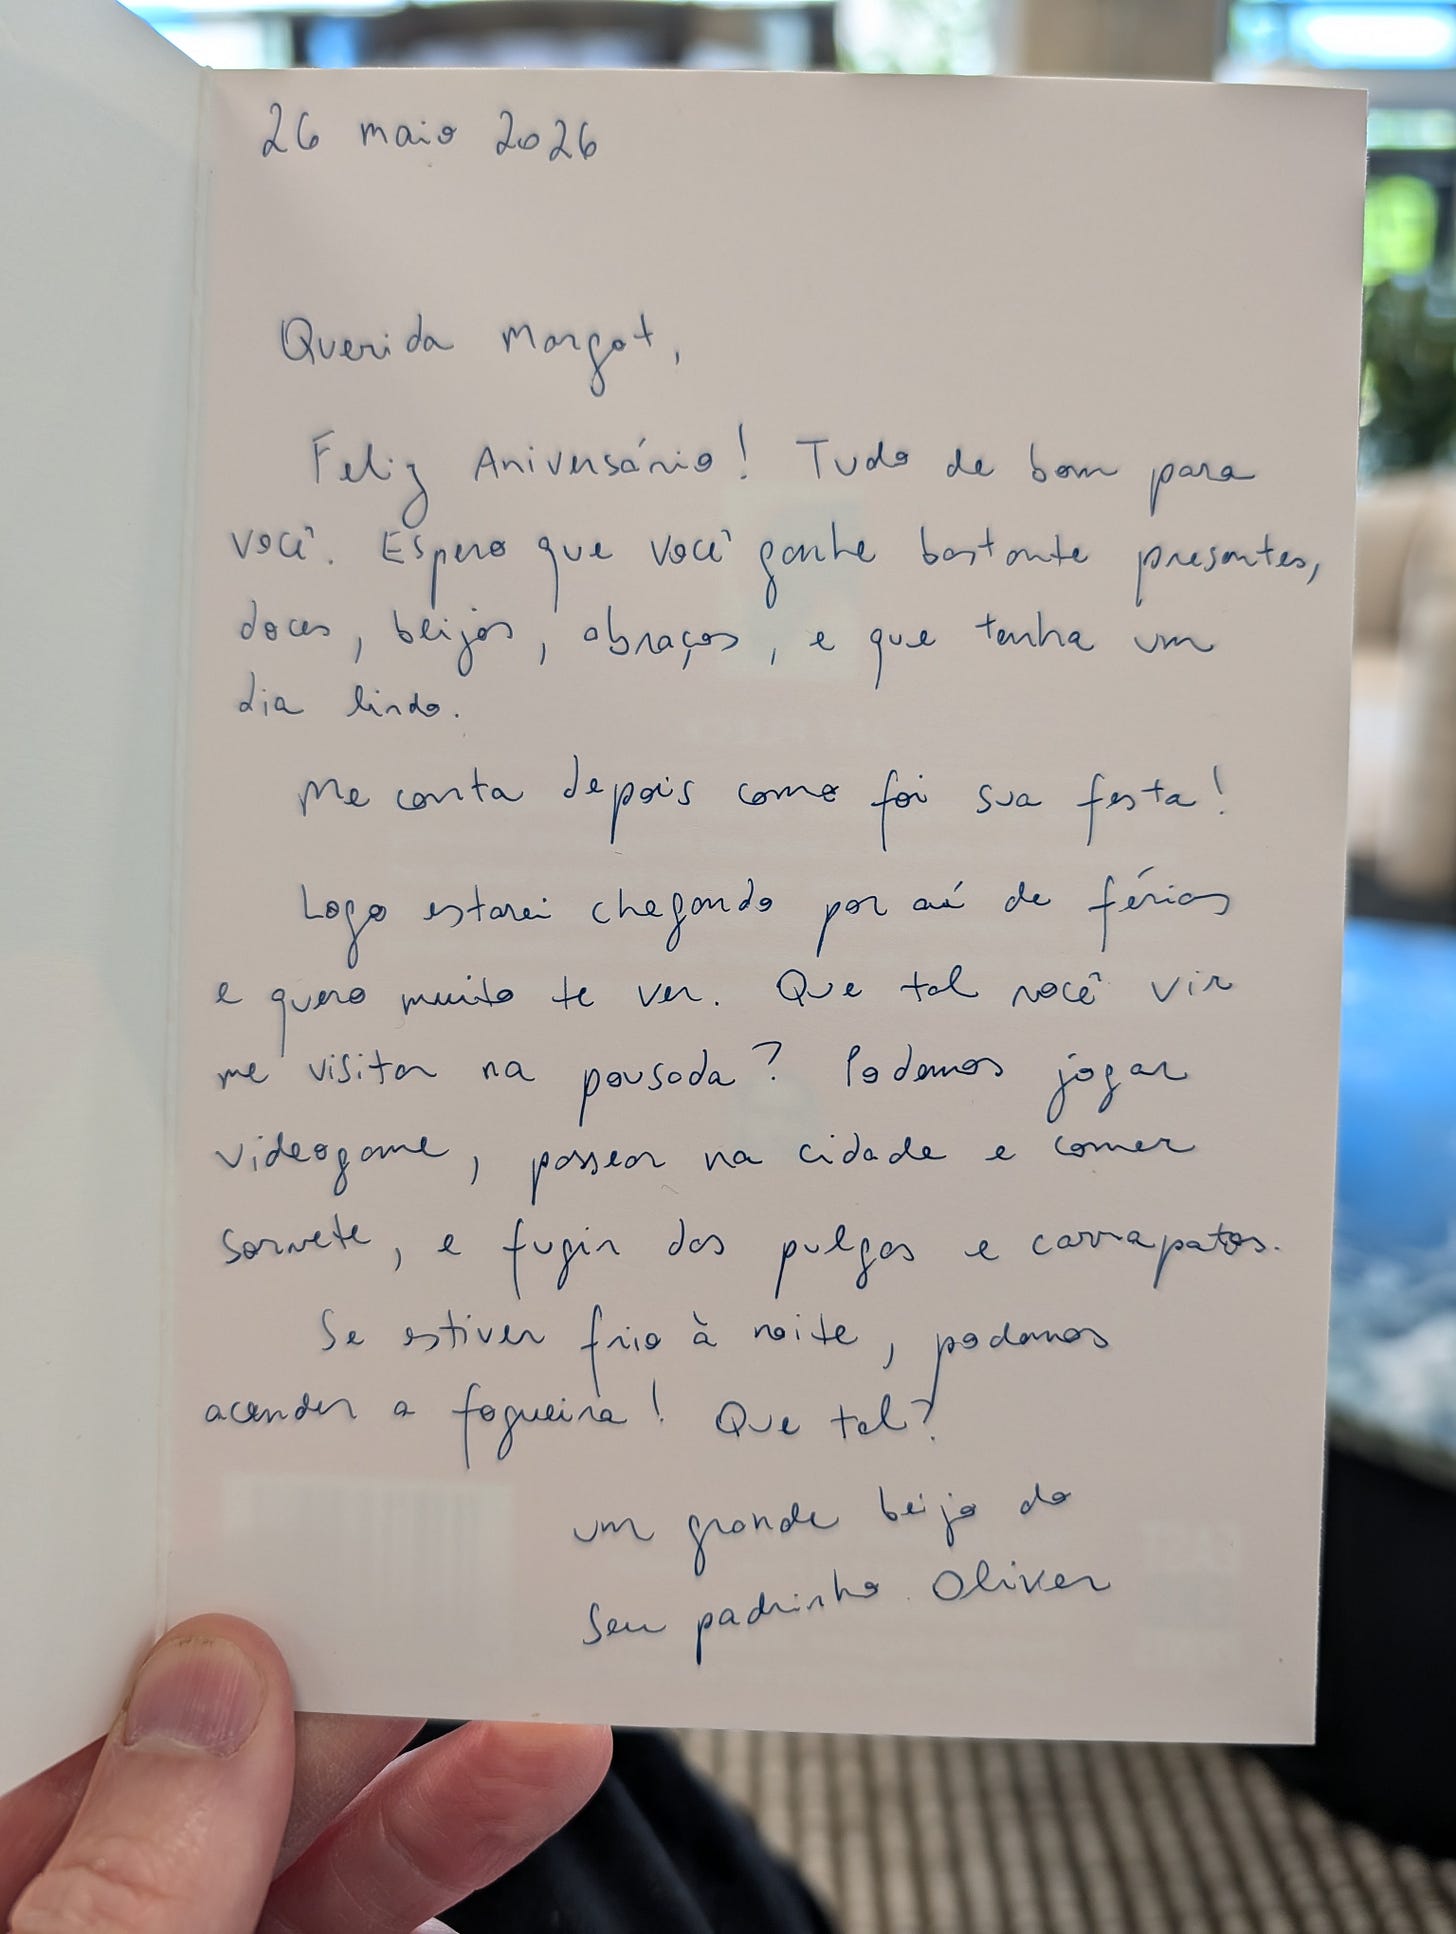 26 maio 2026
Querida Margot,
Feliz Aniversário! Tudo de bom para
você. Espero que você ganhe bastante presentes,
doces, beijos, abraços, e que tenha um
dia lindo.
Me conta depois como foi sua festa!
Logo estarei chegando por aí de férias
e quero muito te ver. Que tal você vir
me visitar na pousada? Podemos jogar
videogame, passear na cidade e comer
sorvete, e fugir das pulgas e carrapatos.
Se estiver frio à noite, podemos
acender a fogueira! Que tal?
um grande beijo do
seu padrinho Oliver